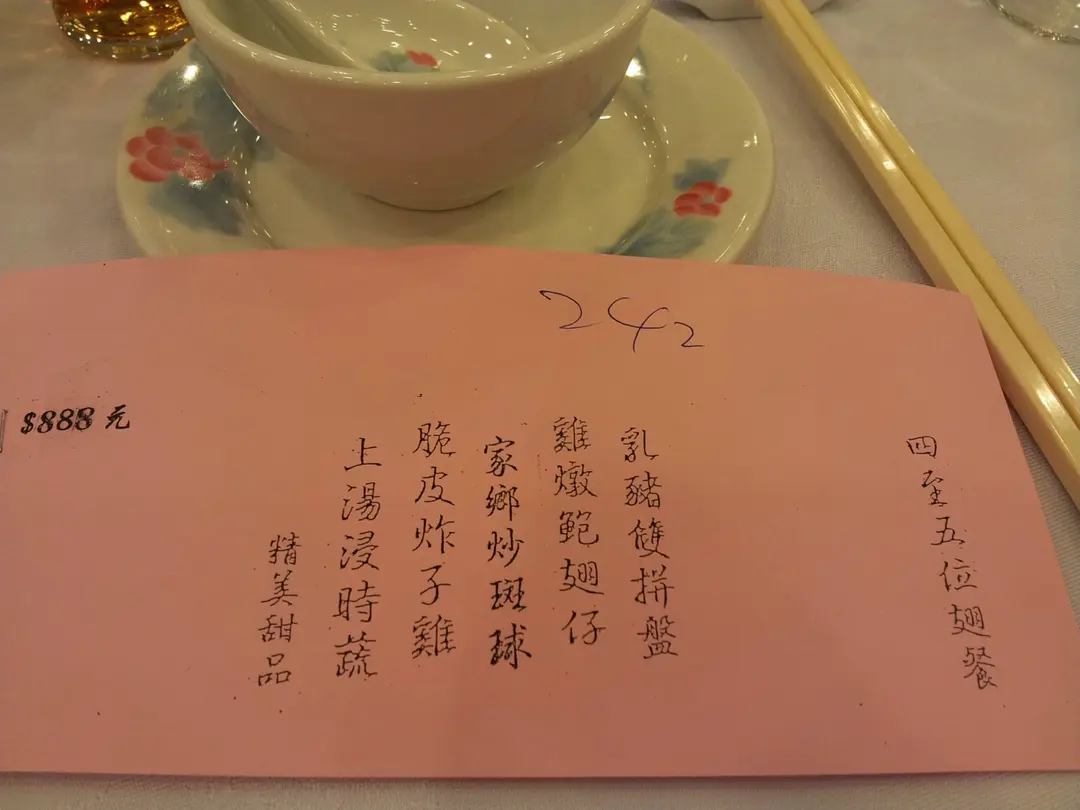 242
四至五位翅餐
乳豬雙拼盤
雞燉鮑翅仔
家鄉炒斑球
脆皮炸子雞
上湯浸時蔬
精美甜品
$888 元